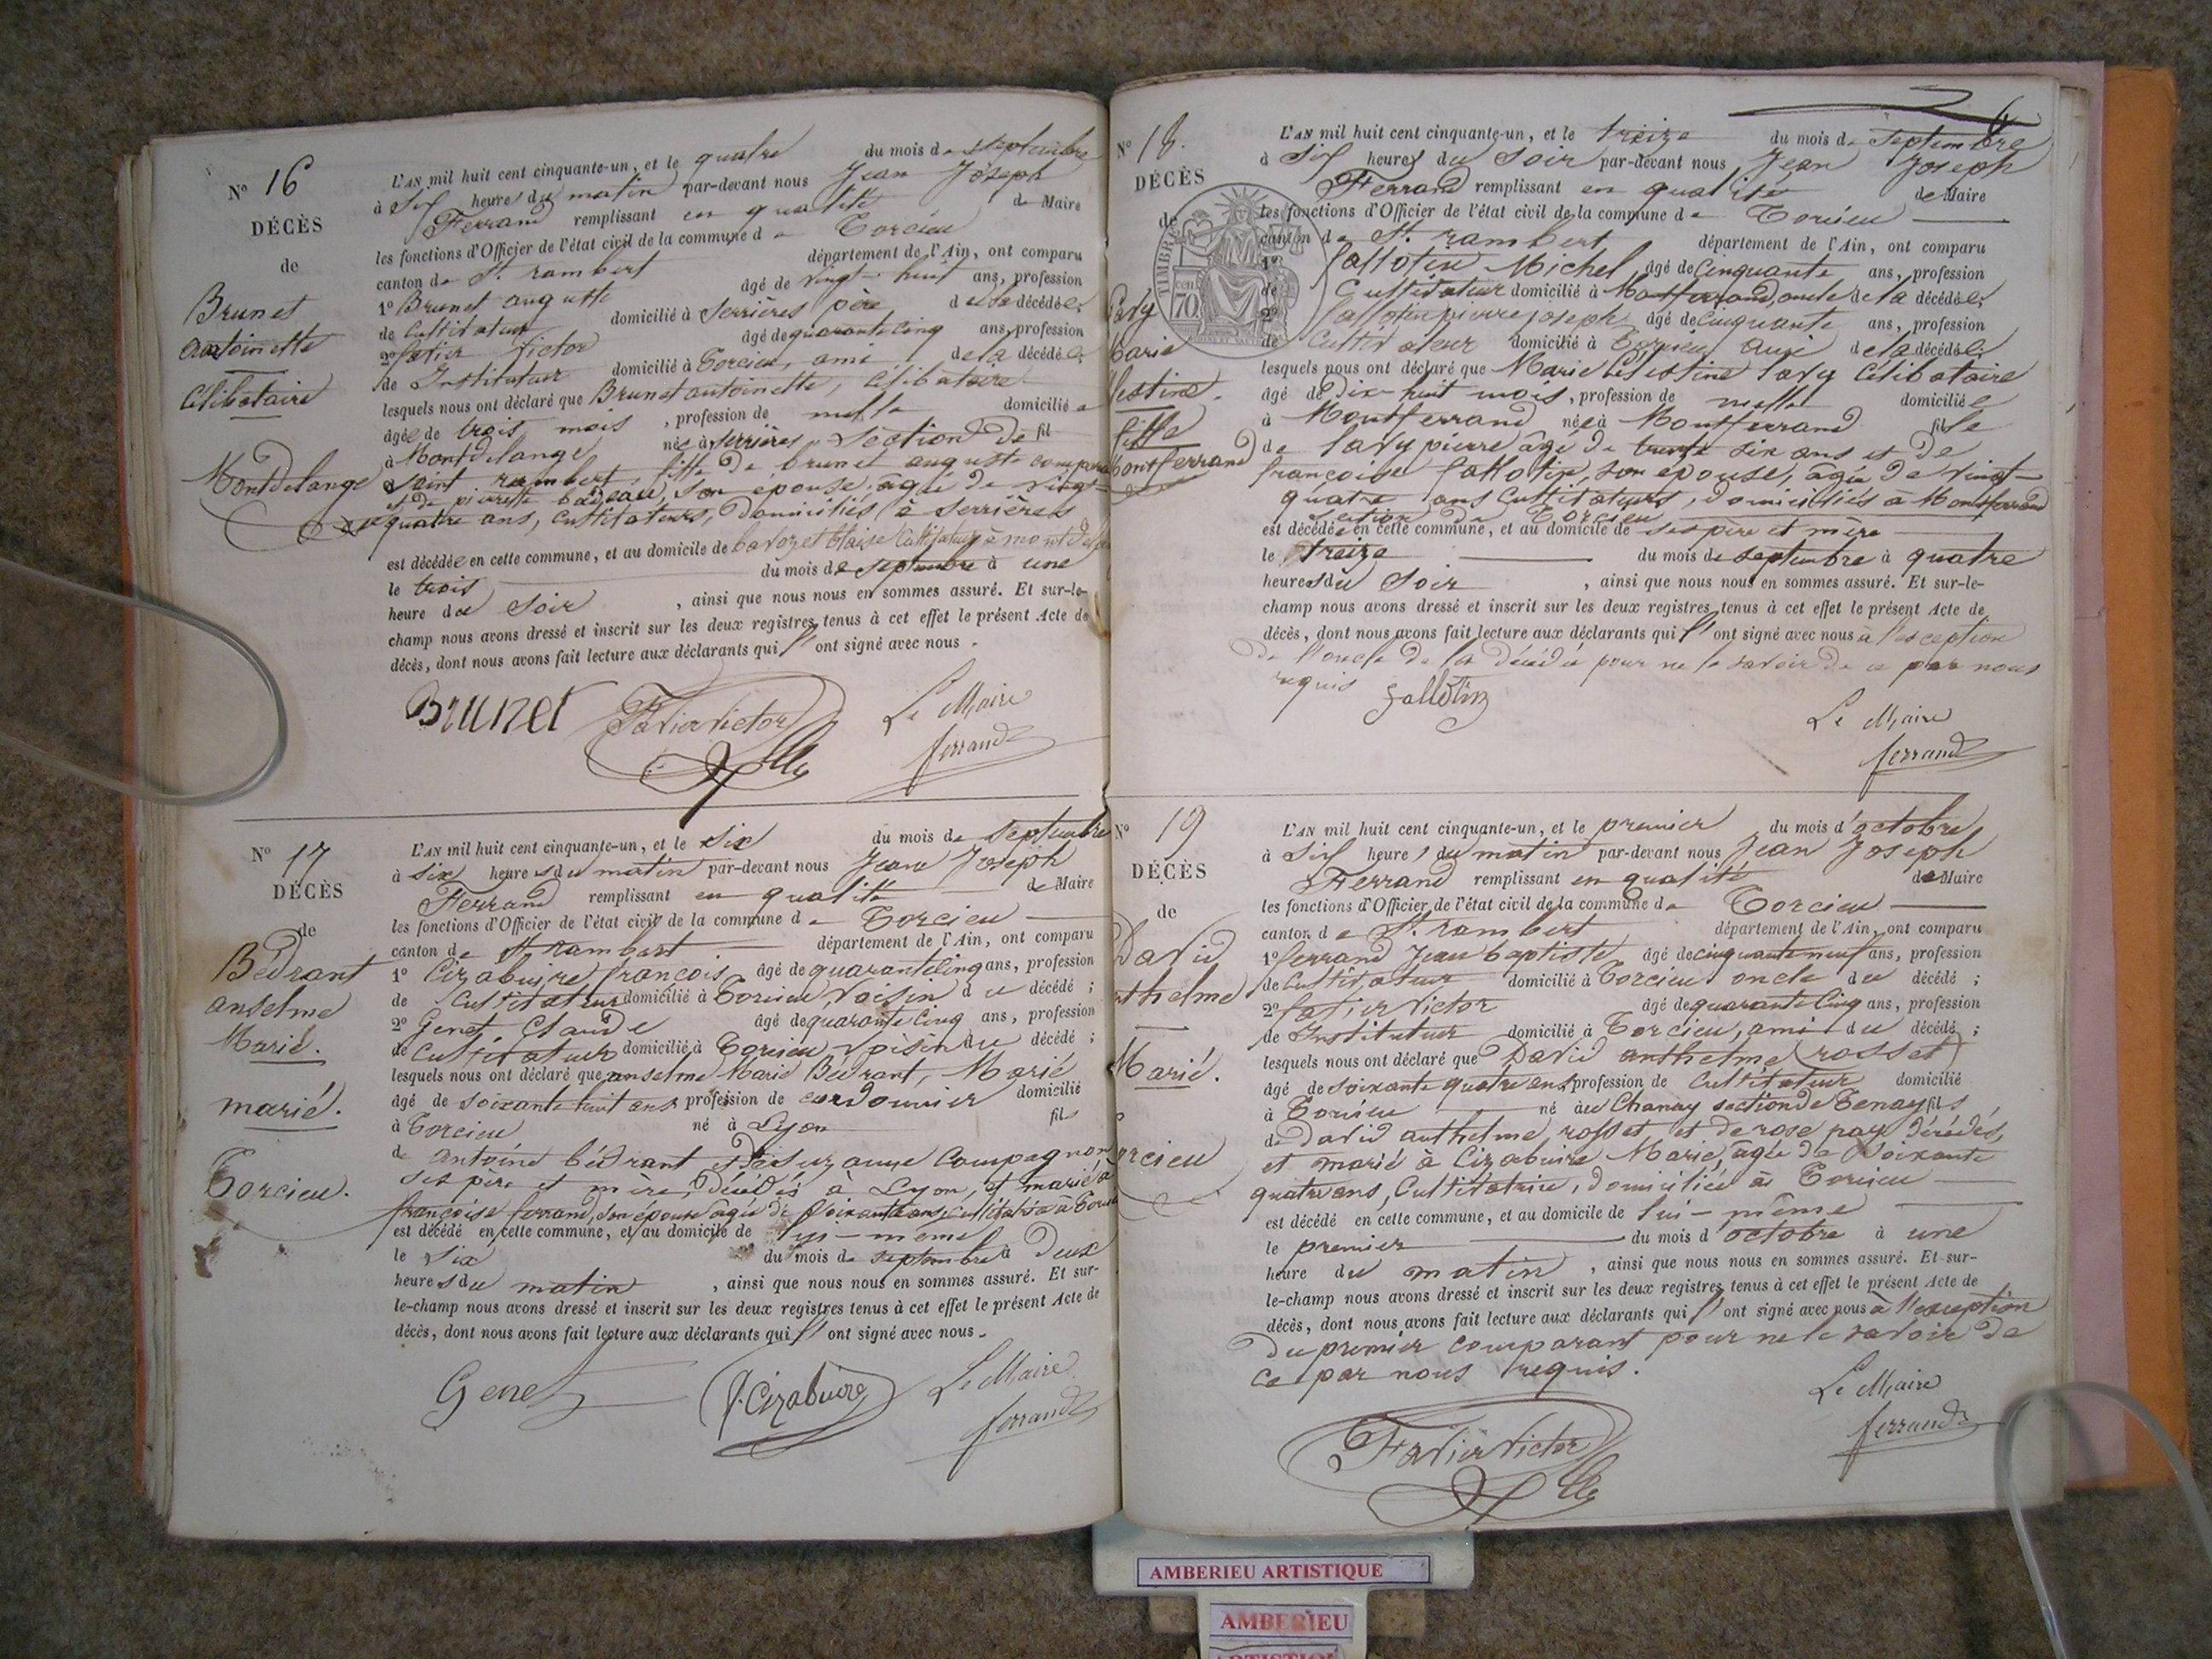 N° 16
DÉCÈS
de
Brunet
antoinette
Célibataire
Montdelange
L'AN mil huit cent cinquante-un, et le quatre du mois de septembre
à Six heures du matin par-devant nous Jean Joseph
Ferrand remplissant en qualité de Maire
les fonctions d'Officier de l'état civil de la commune de Torcieu
canton de St. rambert département de l'Ain, ont comparu
1° Brunet auguste âgé de vingt-huit ans, profession
de Cultivateur domicilié à Serrières père de la décédée;
2° favier Victor âgé de quarante cinq ans, profession
de Instituteur domicilié à Torcieu, ami de la décédée;
lesquels nous ont déclaré que Brunet antoinette, Célibataire
âgée de trois mois, profession de nulle domiciliée
à Montdelange née à Serrières, Section de fil
saint rambert, fille de brunet auguste
et de pierrette badeau, son epouse, agée de vingt-
quatre ans, Cultivateurs, domiciliés à Serrières
est décédée en cette commune, et au domicile de Blaise Cultivateur à
le trois du mois de septembre à une
heure du Soir, ainsi que nous nous en sommes assuré. Et sur-le-
champ nous avons dressé et inscrit sur les deux registres tenus à cet effet le présent Acte de
décès, dont nous avons fait lecture aux déclarants qui l' ont signé avec nous.
Brunet Favier Victor Le Maire
ferrand
N° 17
DÉCÈS
de
Bedrant
anselme
Marié.
marié.
Torcieu.
L'AN mil huit cent cinquante-un, et le six du mois de septembre
à six heures du matin par-devant nous Jean Joseph
Ferrand remplissant en qualité de Maire
les fonctions d'Officier de l'état civil de la commune de Torcieu
canton de St rambert département de l'Ain, ont comparu
1° Cizabuire françois âgé de quarante cinq ans, profession
de Cultivateur domicilié à Torcieu Voisin du décédé;
2° Genet, Claude âgé de quarante cinq ans, profession
de Cultivateur domicilié à Torcieu Voisin du décédé;
lesquels nous ont déclaré que anselme Marie Bedrant, Marié
âgé de soixante huit ans profession de cordonnier domicilié
à Torcieu né à Lyon fils
de antoine bédrant et de Suzanne Compagnon
ses père et mère, décédés à Lyon, et marié à
françoise ferrand, son epouse agée de Soixante ans, cultivatrice à Torcieu
est décédé en cette commune, et au domicile de lui-même
le Six du mois de septembre à deux
heures du matin, ainsi que nous nous en sommes assuré. Et sur-
le-champ nous avons dressé et inscrit sur les deux registres tenus à cet effet le présent Acte de
décès, dont nous avons fait lecture aux déclarants qui l' ont signé avec nous.
Genet f. Cizabuire Le Maire
ferrand
N° 18.
DÉCÈS
de
TIMBRE
70
Savy
Marie
lestine.
fille
Montferrand
L'AN mil huit cent cinquante-un, et le treize du mois de septembre
à Six heures du Soir par-devant nous Jean Joseph
Ferrand remplissant en qualité de Maire
les fonctions d'Officier de l'état civil de la commune de Torcieu
canton de St. rambert département de l'Ain, ont comparu
1° Gallotin Michel âgé de cinquante ans, profession
de Cultivateur domicilié à Montferrand, oncle de la décédée;
2° Gallotin pierre joseph âgé de cinquante ans, profession
de Cultivateur domicilié à Torcieu ami de la décédée;
lesquels nous ont déclaré que Marie Célestine Savy Célibataire
âgé de Dix-huit mois, profession de nulle domiciliée
à Montferrand née à Montferrand fille
de Savy pierre âgé de trente six ans et de
françoise Gallotin, son epouse, âgée de vingt-
quatre ans Cultivateurs, domiciliés à Montferrand
Section de Torcieu
est décédée en cette commune, et au domicile de ses père et mère
le treize du mois de septembre à quatre
heures du Soir, ainsi que nous nous en sommes assuré. Et sur-le-
champ nous avons dressé et inscrit sur les deux registres tenus à cet effet le présent Acte de
décès, dont nous avons fait lecture aux déclarants qui l' ont signé avec nous à l'exception
de l'oncle de la décédée pour ne le savoir de ce par nous
requis Gallotin
Le Maire
ferrand
N° 19
DÉCÈS
de
David
nthelme
Marié.
orcieu
L'AN mil huit cent cinquante-un, et le premier du mois d'octobre
à Six heures du matin par-devant nous Jean Joseph
Ferrand remplissant en qualité de Maire
les fonctions d'Officier de l'état civil de la commune de Torcieu
canton de St. rambert département de l'Ain, ont comparu
1° ferrand Jean baptiste âgé de cinquante neuf ans, profession
de Cultivateur domicilié à Torcieu oncle du décédé;
2° favier Victor âgé de quarante cinq ans, profession
de Instituteur domicilié à Torcieu, ami du décédé;
lesquels nous ont déclaré que David anthelme (rosset)
âgé de soixante quatre ans profession de Cultivateur domicilié
à Torcieu né au Chanay section de Tenay fils
de David anthelme rosset et de rose pay décédés,
et marié à Cizabuire Marie, agée de Soixante
quatre ans, Cultivatrice, domiciliée à Torcieu
est décédé en cette commune, et au domicile de lui-même
le premier du mois d'octobre à une
heure du matin, ainsi que nous nous en sommes assuré. Et sur-
le-champ nous avons dressé et inscrit sur les deux registres tenus à cet effet le présent Acte de
décès, dont nous avons fait lecture aux déclarants qui l' ont signé avec nous à l'exception
du premier comparant pour ne le savoir de
ce par nous requis.
Le Maire
ferrand
Favier Victor
AMBERIEU ARTISTIQUE
AMBERIEU
ARTISTIQUE